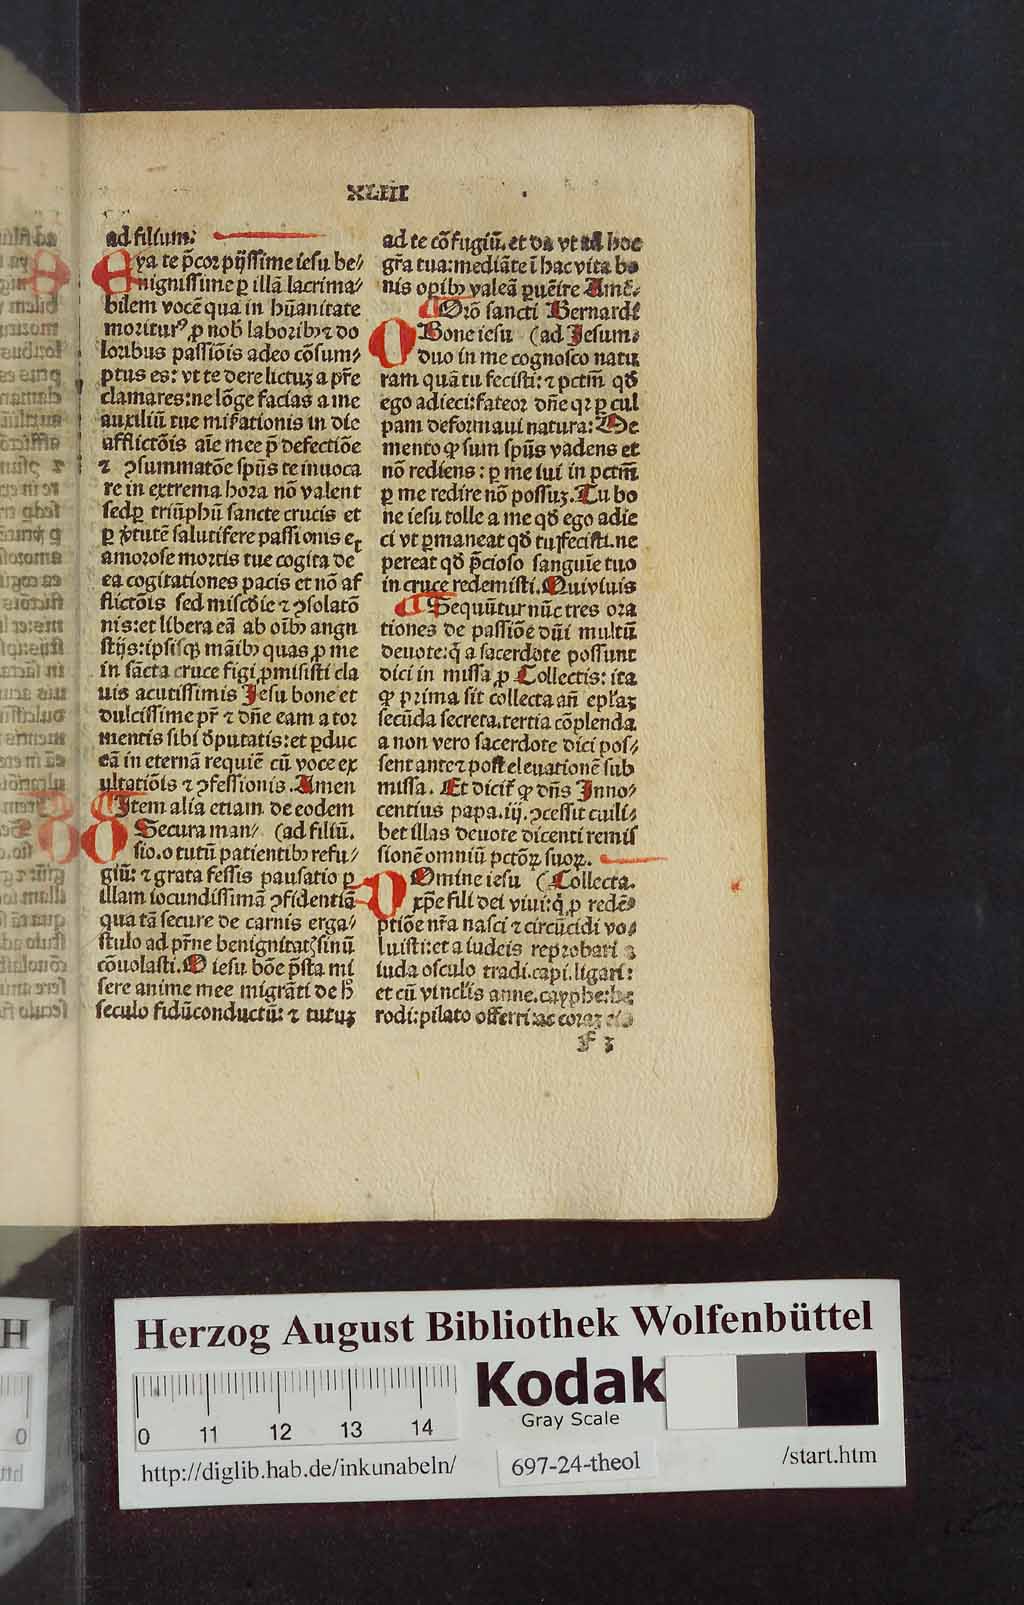 XLIII
ad filium:
Eya te p̄cor pijssime iesu be⸗
nignissime ꝑ illā lacrima⸗
bilem vocē qua in hūanitate
moriturꝰ ꝓ nob̄ laboribꝫ ⁊ do
loribus passiōis adeo cōsum⸗
ptus es: vt te dere lictuꝫ a pr̄e
clamares: ne lōge facias a me
auxiliū tue mis̄ationis in die
afflictōis aīe mee p̄ defectiōe
⁊ ꝯsummatōe spūs te inuoca
re in extrema hora nō valent
sedꝑ triūphū sancte crucis et
ꝑ v̄tutē salutifere passionis et
amorose mortis tue cogita de
ea cogitationes pacis et nō af
flictōis sed misc̄die ⁊ ꝯsolatō
nis: et libera eā ab oīb̄ꝫ angu
stijs: ipsisqꝫ māibꝫ quas ꝓ me
in sācta cruce figi ꝓmisisti cla
uis acutissimis Jesu bone et
dulcissime pr̄ ⁊ dn̄e eam a tor
mentis sibi d̄putatis: et ꝑduc
eā in eternā requiē cū voce ex
ultatiōis ⁊ ꝯfessionis. Amen
¶ Item alia etiam de eodem
O Secura man⸗ (ad filiū.
sio. o tutū patientibꝫ refu⸗
giū: ⁊ grata fessis pausatio ꝑ
illam iocundissimā ꝯfidentiā
qua tā secure de carnis erga⸗
stulo ad pr̄ne benignitatꝭ sinū
cōuolasti. O iesu bōe p̄sta mi
sere anime mee migrāti de h̄
seculo fidūconductū: ⁊ tutuꝫ
ad te cōfugiū. et da vt ad hoc
gr̄a tua: mediāte ī hac vita bo
nis opibꝫ valeā ꝑuēire Amē.
¶ Orō sancti Bernardi
O Bone iesu (ad Jesum.
duo in me cognosco natu
ram quā tu fecisti: ⁊ pctm̄ qd̄
ego adieci: fateor dn̄e qꝛ ꝑ cul
pam deformaui natura: Me
mento ꝙ sum spūs vadens et
nō rediens: ꝑ me iui in pctm̄
ꝑ me redire nō possuꝫ. Tu bo
ne iesu tolle a me qd̄ ego adie
ci vt ꝑmaneat qd̄ tu fecisti. ne
pereat qd̄ p̄cioso sanguīe tuo
in cruce redemisti. Quiviuis
¶ Sequūtur nūc tres ora
tiones de passiōe dn̄i multū
deuote: q̄ a sacerdote possunt
dici in missa ꝓ Collectis: ita
ꝙ prima sit collecta an̄ epl̄aꝫ
secūda secreta. tertia cōplenda
a non vero sacerdote dici pos⸗
sent ante ⁊ post eleuationē sub
missa. Et dicit̄ ꝙ dn̄s Inno⸗
centius papa. iij. ꝯcessit cuili⸗
bet illas deuote dicenti remis
sionē omniū pctōꝝ suoꝝ.
Domine iesu (Collecta.
xp̄e fili dei viui: q̄ ꝓ redē⸗
ptiōe nr̄a nasci ⁊ circūcidi vo⸗
luisti: et a iudeis reprobari a
iuda osculo tradi. capi. ligari:
et cū vinclis anne. cayphe: he
rodi: pilato offerri: ac coraꝫ
f 3
Herzog August Bibliothek Wolfenbüttel
Kodak
Gray Scale
0 11 12 13 14
http://diglib.hab.de/inkunabeln/
697-24-theol
/start.htm